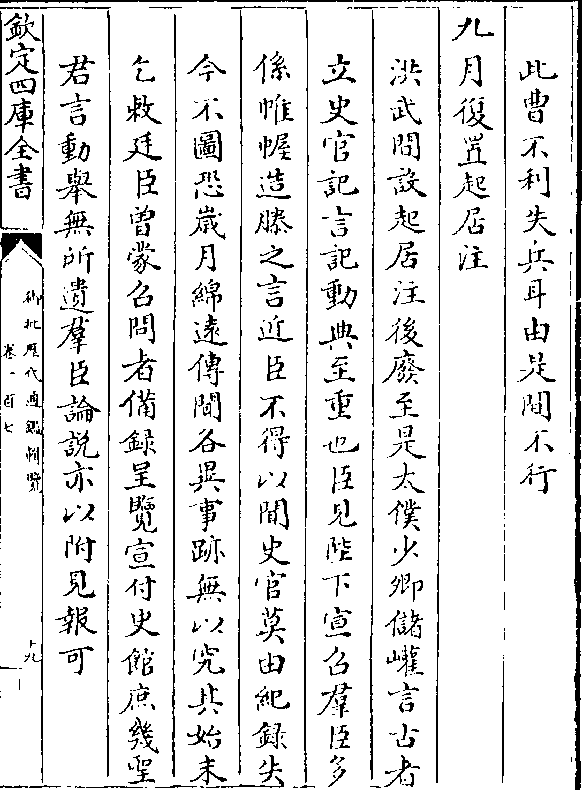 此曹不利失兵耳由是間不行
九月復置起居注
洪武間設起居注後廢至是太僕少卿儲巏言古者
立史官記言記動典至重也臣見陛下宣召羣臣多
係帷幄造膝之言近臣不得以聞史官莫由紀錄失
今不圖恐歲月綿遠傳聞各異事跡無以究其始末
乞敕廷臣曽蒙召問者備録呈覽宣付史館庶幾聖
君言動舉無所遺羣臣論説亦以附見報可
欽定四庫全書
御批歷代通鑑輯覽
卷一百七
十九